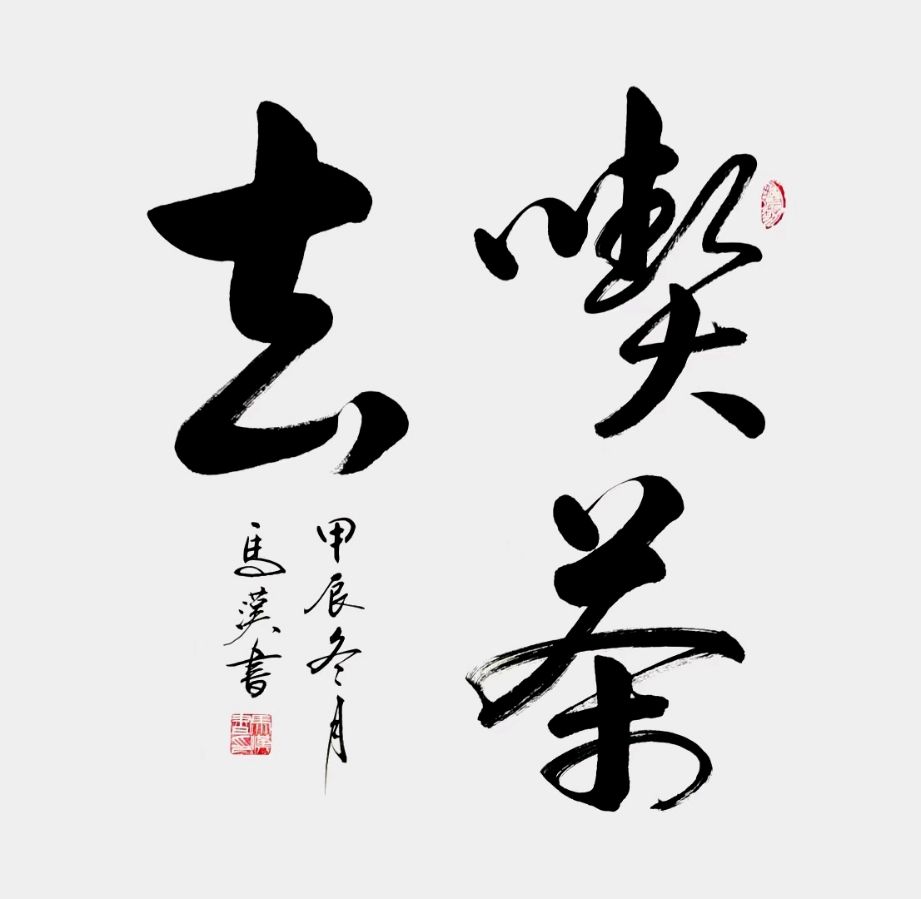 喫茶
去
甲辰冬月
馬漢書